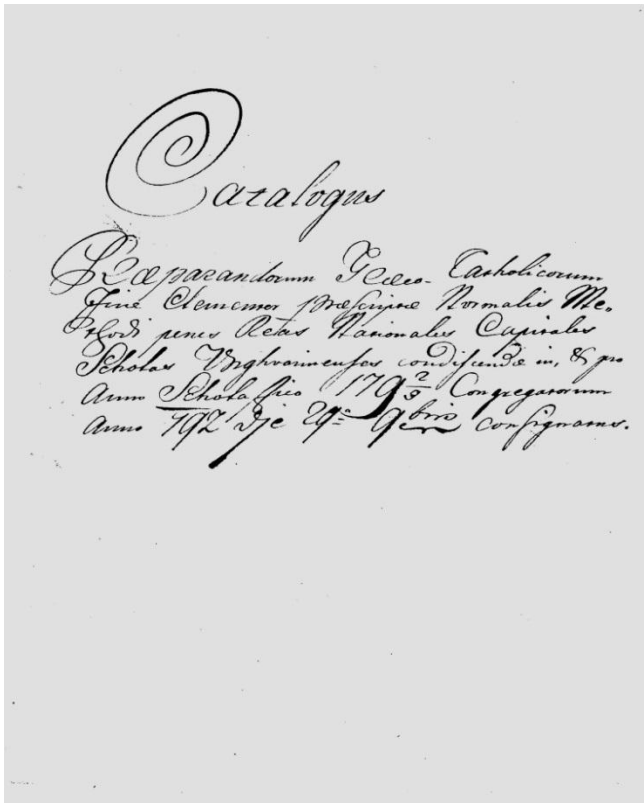 Catalogus
Præparandorum Græco-Catholicorum
Fine Clementer præscriptæ Normalis Me-
thodi penes Regias Nationales Capitales
Scholas Unghvarinenses condiscendæ in, & pro
Anno Scholastico 179 2/3 Congregatorum
Anno 792 Die 29a 9bris consignatus.